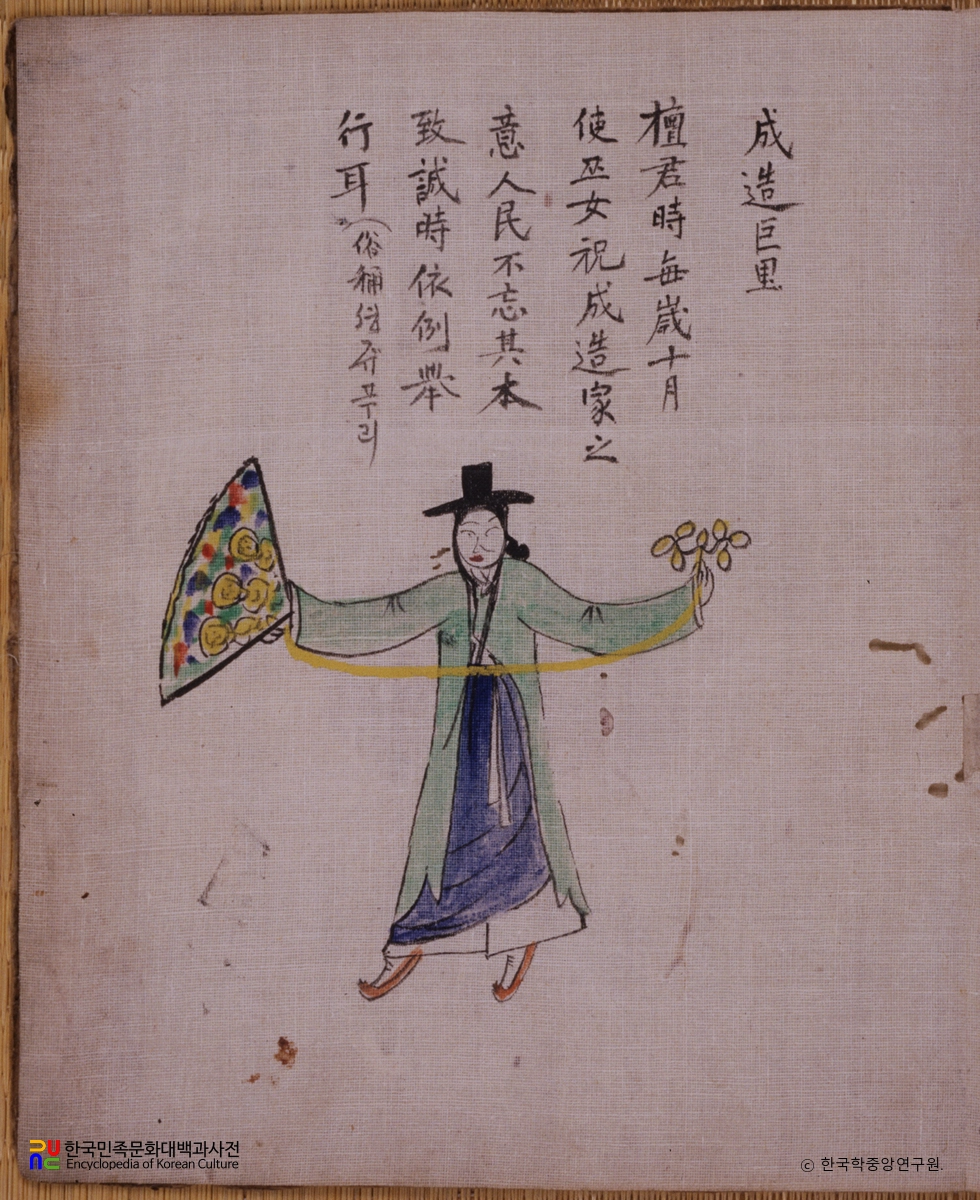 成造巨里
檀君時每歲十月
使巫女祝成造家之
意人民不忘其本
致誠時依例舉
行耳(俗稱 푸리
한국민족문화대백과사전
Encyclopedia of Korean Culture
ⓒ 한국학중앙연구원.